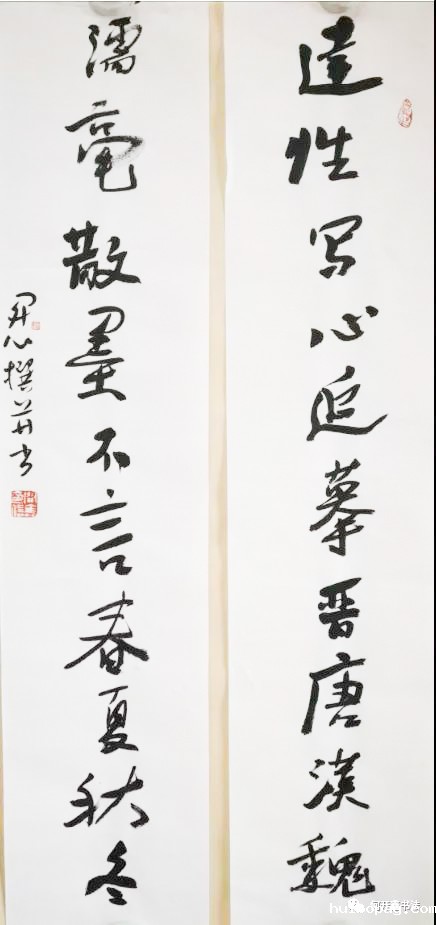 達性写心追摹晋唐漢魏
濡毫散墨不言春夏秋冬
開心撰并书